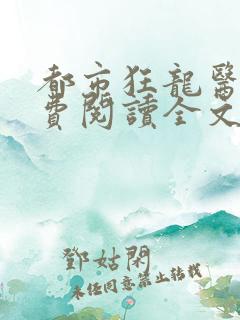 都市狂龍醫
費閱讀全文
鄧姑閑
未經同意禁止轉載